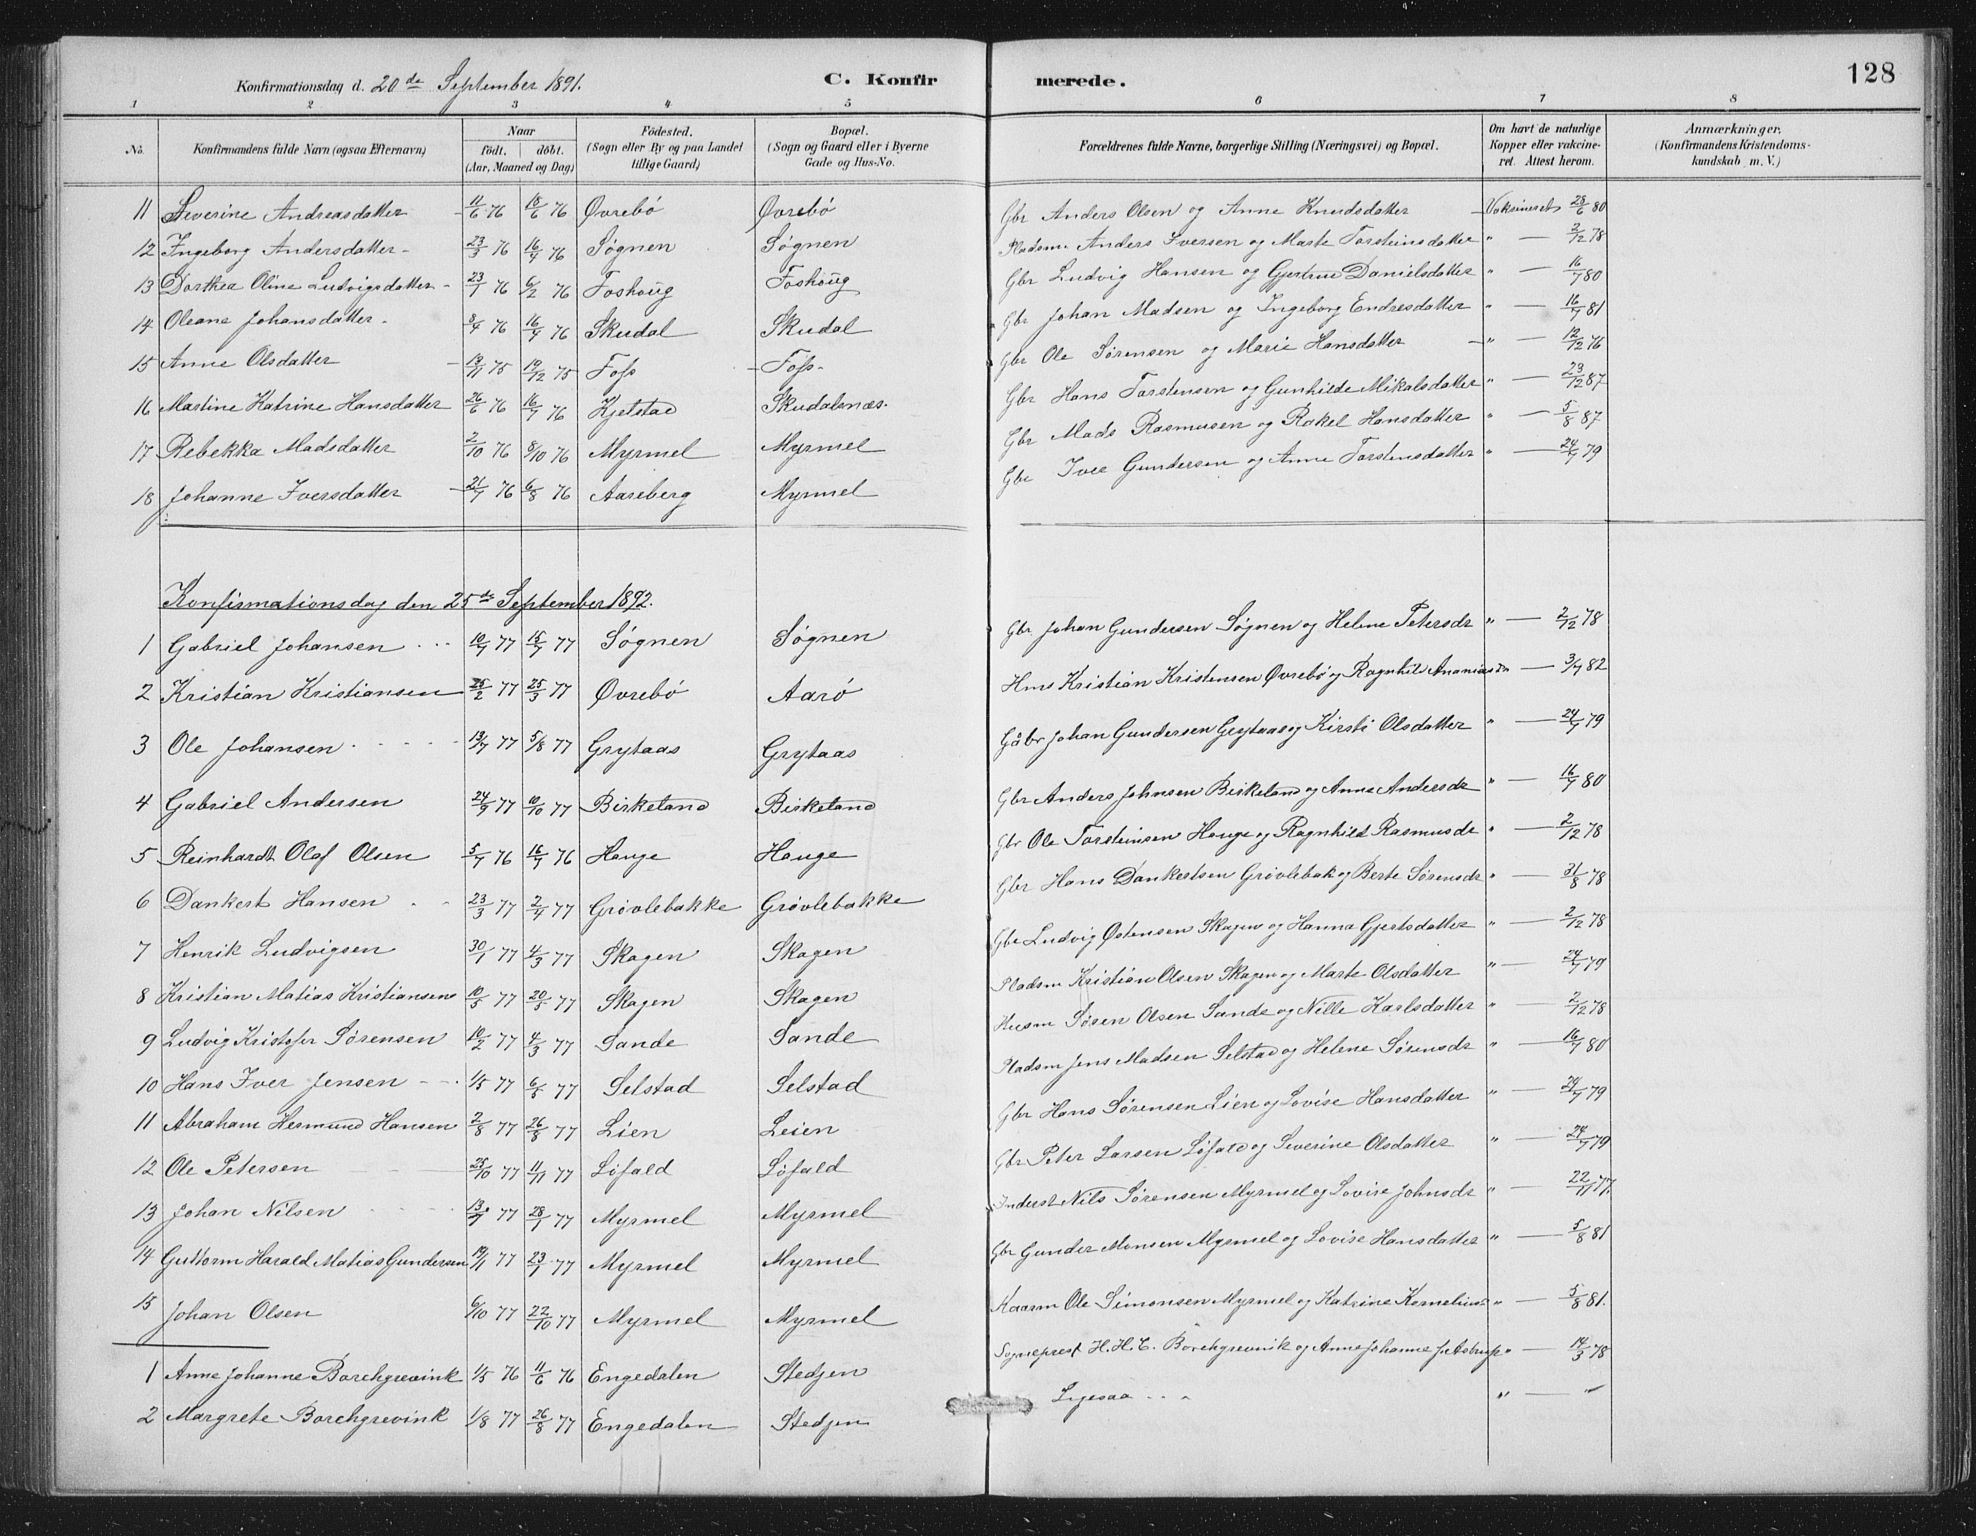 Konfirmationsdag d. 20de September 1891. C. Konfirmerede. 128
1 2 3 4 5 6 7 8
No. Konfirmandens fulde Navn (ogsaa Efternavn) Naar født. døbt. (Aar, Maaned og Dag) Fødested. (Sogn eller By og paa Landet tillige Gaard) Bopæl. (Sogn og Gaard eller i Byerne Gade og Hus-No. Forældrenes fulde Navne, borgerlige Stilling (Næringsvei) og Bopæl. Om havt de naturlige Kopper eller vakcineret. Attest herom. Anmærkninger. (Konfirmandens Kristendomskundskab m. V.)
11 Severine Andreasdatter 11/6 76 18/6 76 Øvrebø Øvrebø Gbr Anders Olsen og Anne Knudsdatter Vaksineret 28/6 80
12 Ingeborg Andersdatter 23/3 76 16/4 76 Søgnen Søgnen Pladsm. Anders Iversen og Marte Torsteinsdatter " — 2/12 78
13 Dorthea Oline Ludvigsdatter 23/1 76 6/2 76 Foshoug Foshoug Gbr Ludvig Hansen og Gjertrue Danielsdatter " — 16/7 80
14 Oleane Johansdatter 8/4 76 16/4 76 Skudal Skudal Gbr Johan Madsen og Ingeborg Endresdatter " — 16/7 81
15 Anne Olsdatter 13/11 75 19/12 75 Foss Foss Gbr Ole Sørensen og Marie Hansdatter " — 12/12 76
16 Martine Katrine Hansdatter 26/6 76 16/7 76 Kjelstad Skudalsnæs Gbr Hans Torstensen og Gunhilde Mikalsdatter " — 23/12 87
17 Rebekka Madsdatter 2/10 76 8/10 76 Myrmel Myrmel Gbr Mads Rasmusen og Rakel Hansdatter " — 5/8 87
18 Johanne Iversdatter 21/7 76 6/8 76 Aareberg Myrmel Gbr Iver Gundersen og Anne Torstensdatter " — 24/7 79
Konfirmationsdag den 25de September 1892.
1 Gabriel Johansen 10/7 77 15/7 77 Søgnen Søgnen Gbr Johan Gundersen Søgnen og Helene Petersdr " — 2/12 78
2 Kristian Kristiansen 25/2 77 25/3 77 Øvrebø Aarø Hms Kristian Kristensen Øvrebø og Ragnhild Ananiasdr — 3/7 82
3 Ole Johansen 13/7 77 5/8 77 Grytaas Grytaas Gåbr Johan Gundersen Grytaas og Kirsti Olsdatter " — 24/7 79
4 Gabriel Andersen 24/9 77 10/10 77 Birkeland Birkeland Gbr Anders Johnsen Birkeland og Anne Andersdr " — 16/7 80
5 Reinhardt Olaf Olsen 5/7 76 16/7 76 Hauge Hauge Gbr Ole Torsteinsen Hauge og Ragnhild Rasmusdr " — 2/12 78
6 Dankert Hansen 23/3 77 2/4 77 Grøvlebakke Grøvlebakke Gbr Hans Dankertsen Grøvlebak og Berte Sørensdr " — 31/8 78
7 Henrik Ludvigsen 30/1 77 4/3 77 Skagen Skagen Gbr Ludvig Østensen Skagen og Hanna Gjertsdatter " — 2/12 78
8 Kristian Matias Kristiansen 10/5 77 20/5 77 Skagen Skagen Pladsm Kristian Olsen Skagen og Marte Olsdatter " — 24/7 79
9 Ludvig Kristofer Sørensen 10/2 77 4/3 77 Sande Sande Husm Søren Olsen Sande og Nille Karlsdatter " — 2/12 78
10 Hans Iver Jensen 1/5 77 6/5 77 Selstad Selstad Pladsm Jens Madsen Selstad og Helene Sørensdr " — 16/7 80
11 Abraham Hermund Hansen 2/8 77 26/8 77 Lien Leien Gbr Hans Sørensen Lien og Lovise Hansdatter " — 24/7 79
12 Ole Petersen 25/10 77 11/11 77 Løfald Løfald Gbr Peter Larsen Løfald og Severine Olsdatter " — 24/7 79
13 Johan Nilsen 77 28/1 77 Myrmel Myrmel Inderst Nils Sørensen Myrmel og Lovise Johnsdr " — 22/11 77.
14 Guttorm Harald Matias Gundersen 19/1 77 23/1 77 Myrmel Myrmel Gbr Gunder Monsen Myrmel og Lovise Hansdatter " — 5/8 81
15 Johan Olsen 6/10 77 22/10 77 Myrmel Myrmel Kaarm Ole Simonsen Myrmel og Katrine " — 5/8 81.
1 Anne Johanne Borchgrevink 1/5 76 11/6 76 Engedalen Stedjen Sogneprest H. H. C. Borchgrevink og Anne Johanne J. Astrup " — 14/3 78
2 Margrete Borchgrevink 1/8 77 26/8 77 Engedalen Stedjen " — "